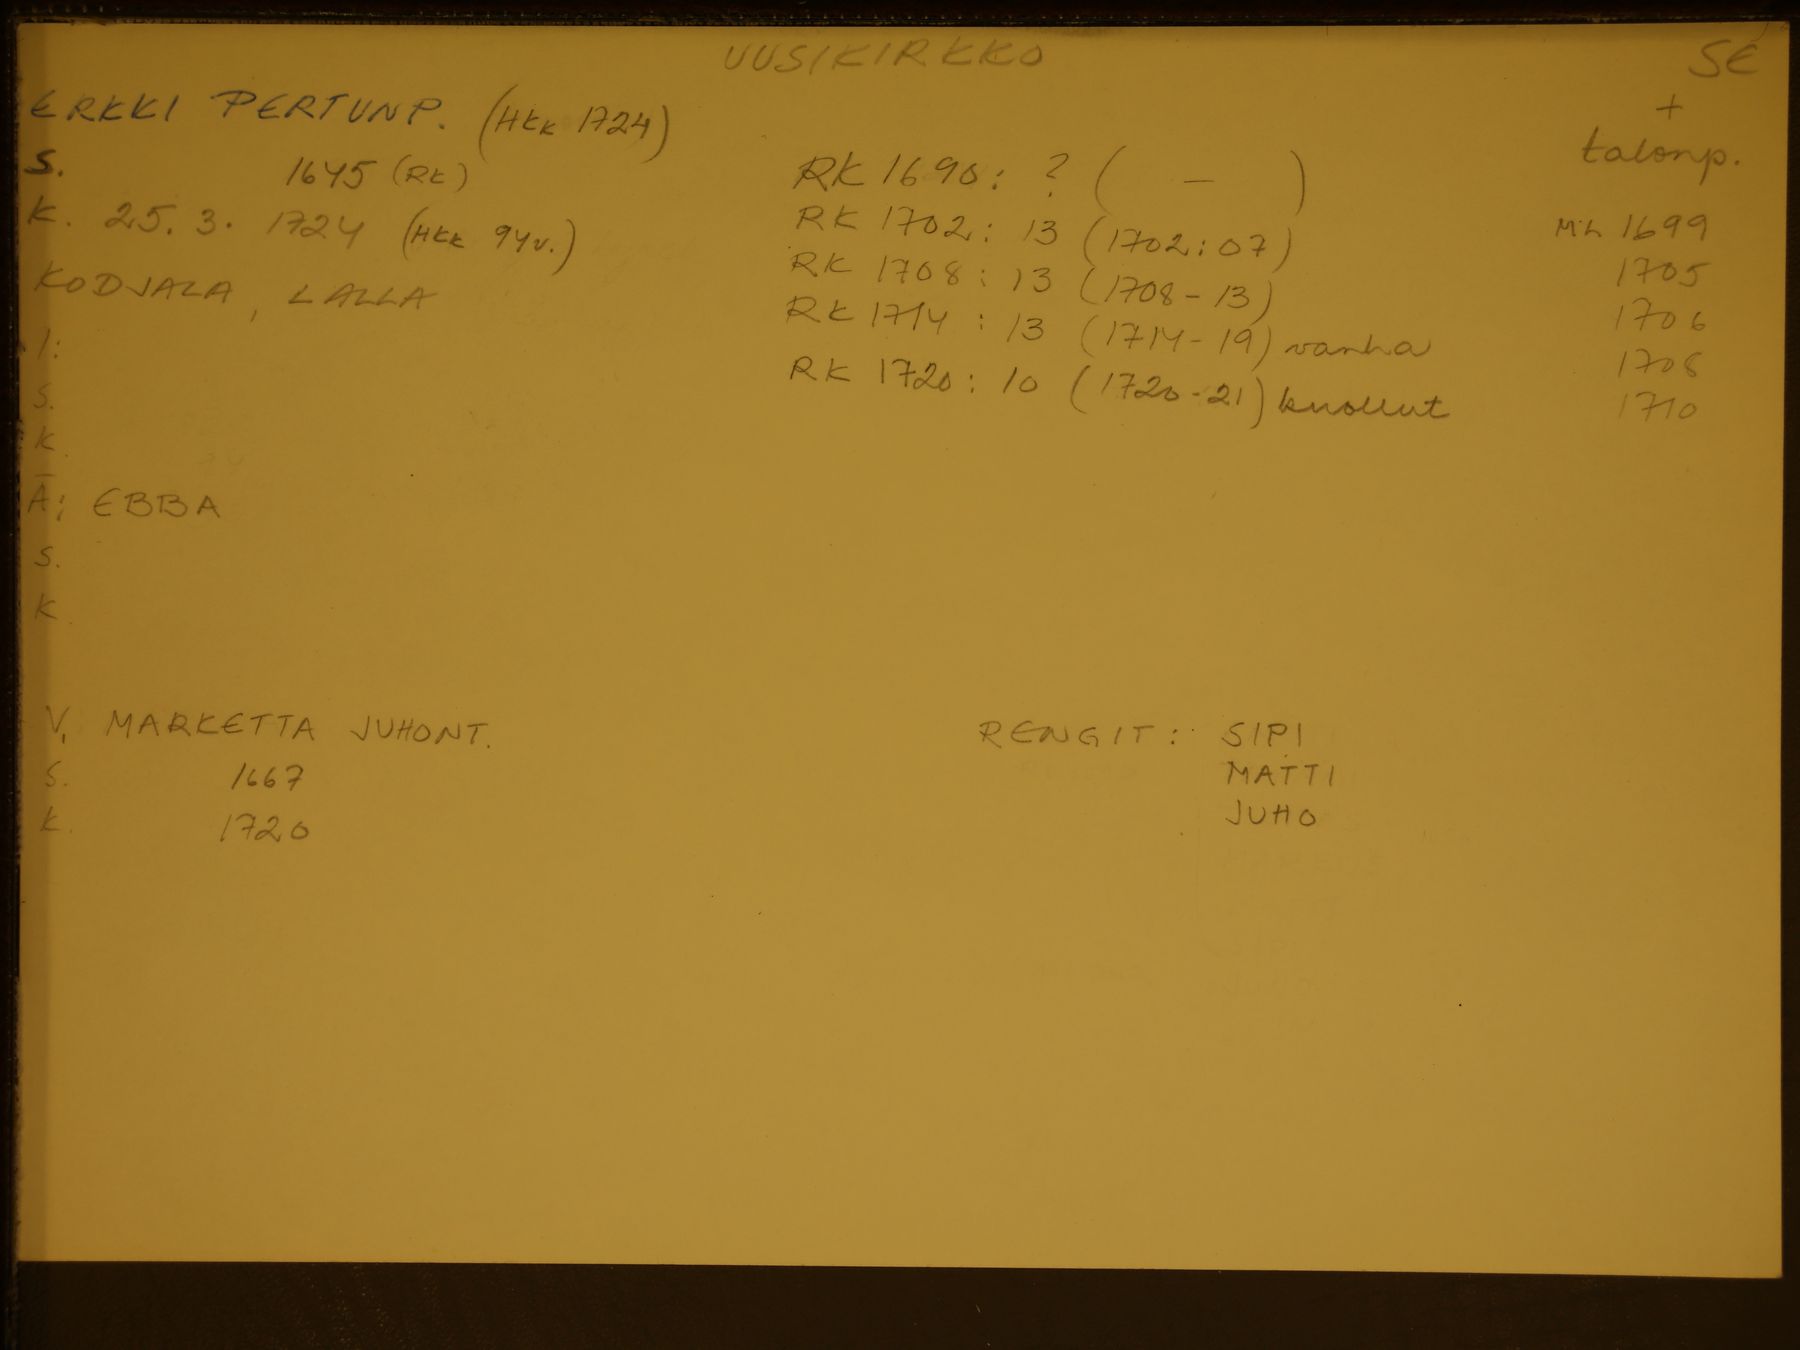 UUSIKIRKKO
SE
ERKKI PERTUNP. (HKK 1724)
S. 1645 (RK)
K. 25. 3. 1724 (HKK 94v.)
KODJALA, LALLA
I:
S.
K.
Ä: EBBA
S.
K
V. MARKETTA JUHONT.
S. 1667
K. 1720
RK 1690: ? ( – )
RK 1702: 13 (1702:07)
RK 1708: 13 (1708-13)
RK 1714: 13 (1714-19) vanha
RK 1720: 10 (1720-21) kuollut
+
talonp.
1699
1705
1706
1708
1710
RENGIT: SIPI
MATTI
JUHO